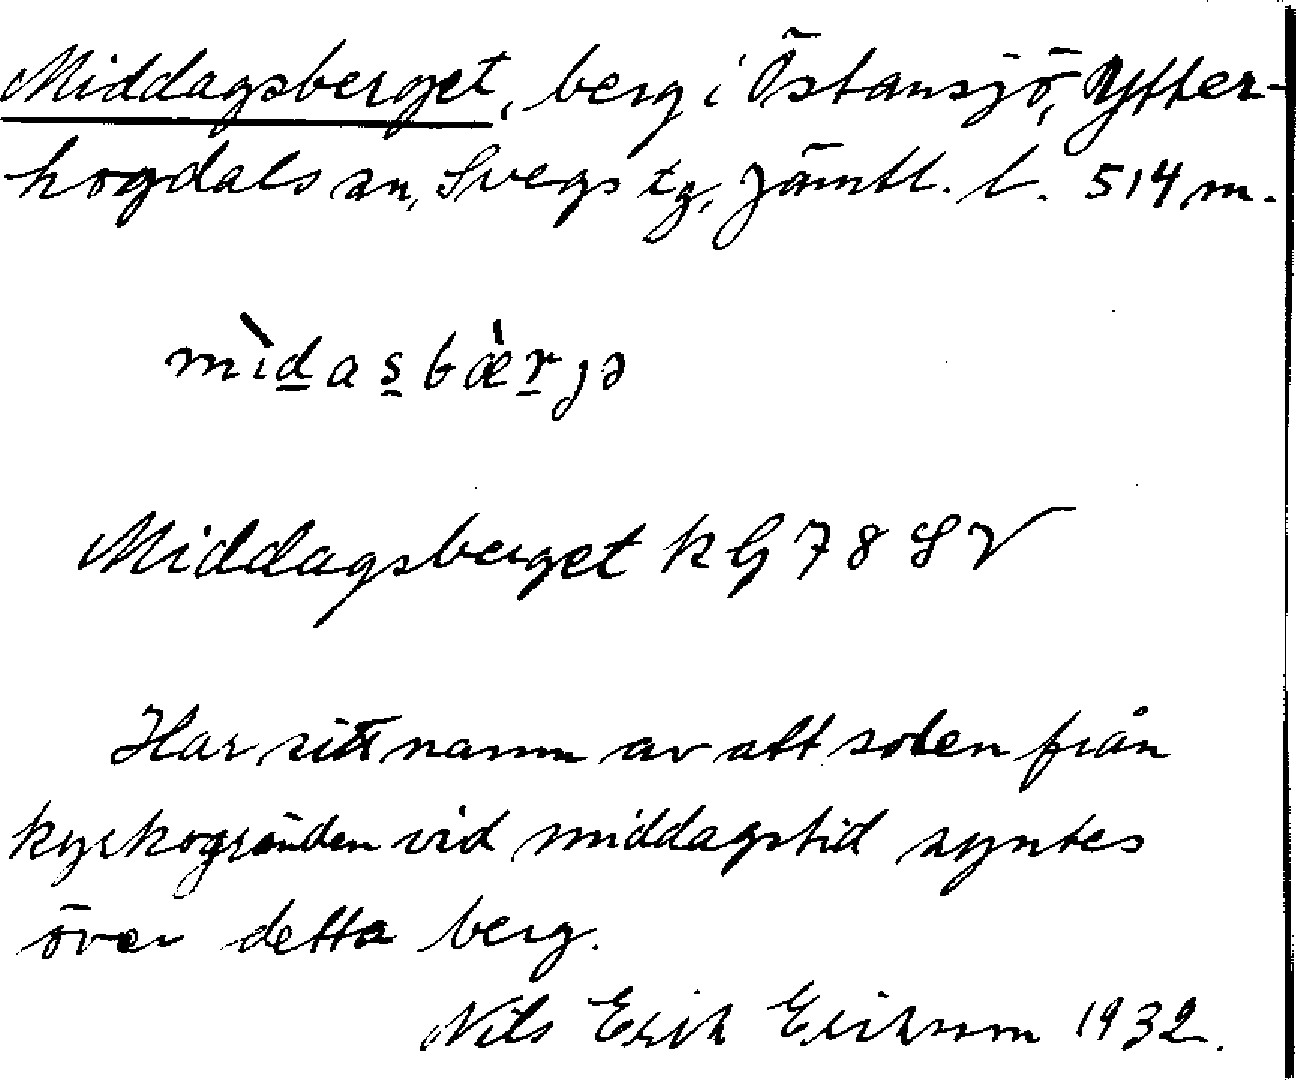 Middagsberget, berg i Östansjö, Ytter-
hogdals sn, Svegs tg, Jämtl. l. 514 m.
mìd̠as̠bæ̀r̠jə
Middagsberget k G 7 8 SV
Har sitt namn av att solen från
kyrkogränden vid middagstid syntes
över detta berg.
Nils Erik Erikson 1932.